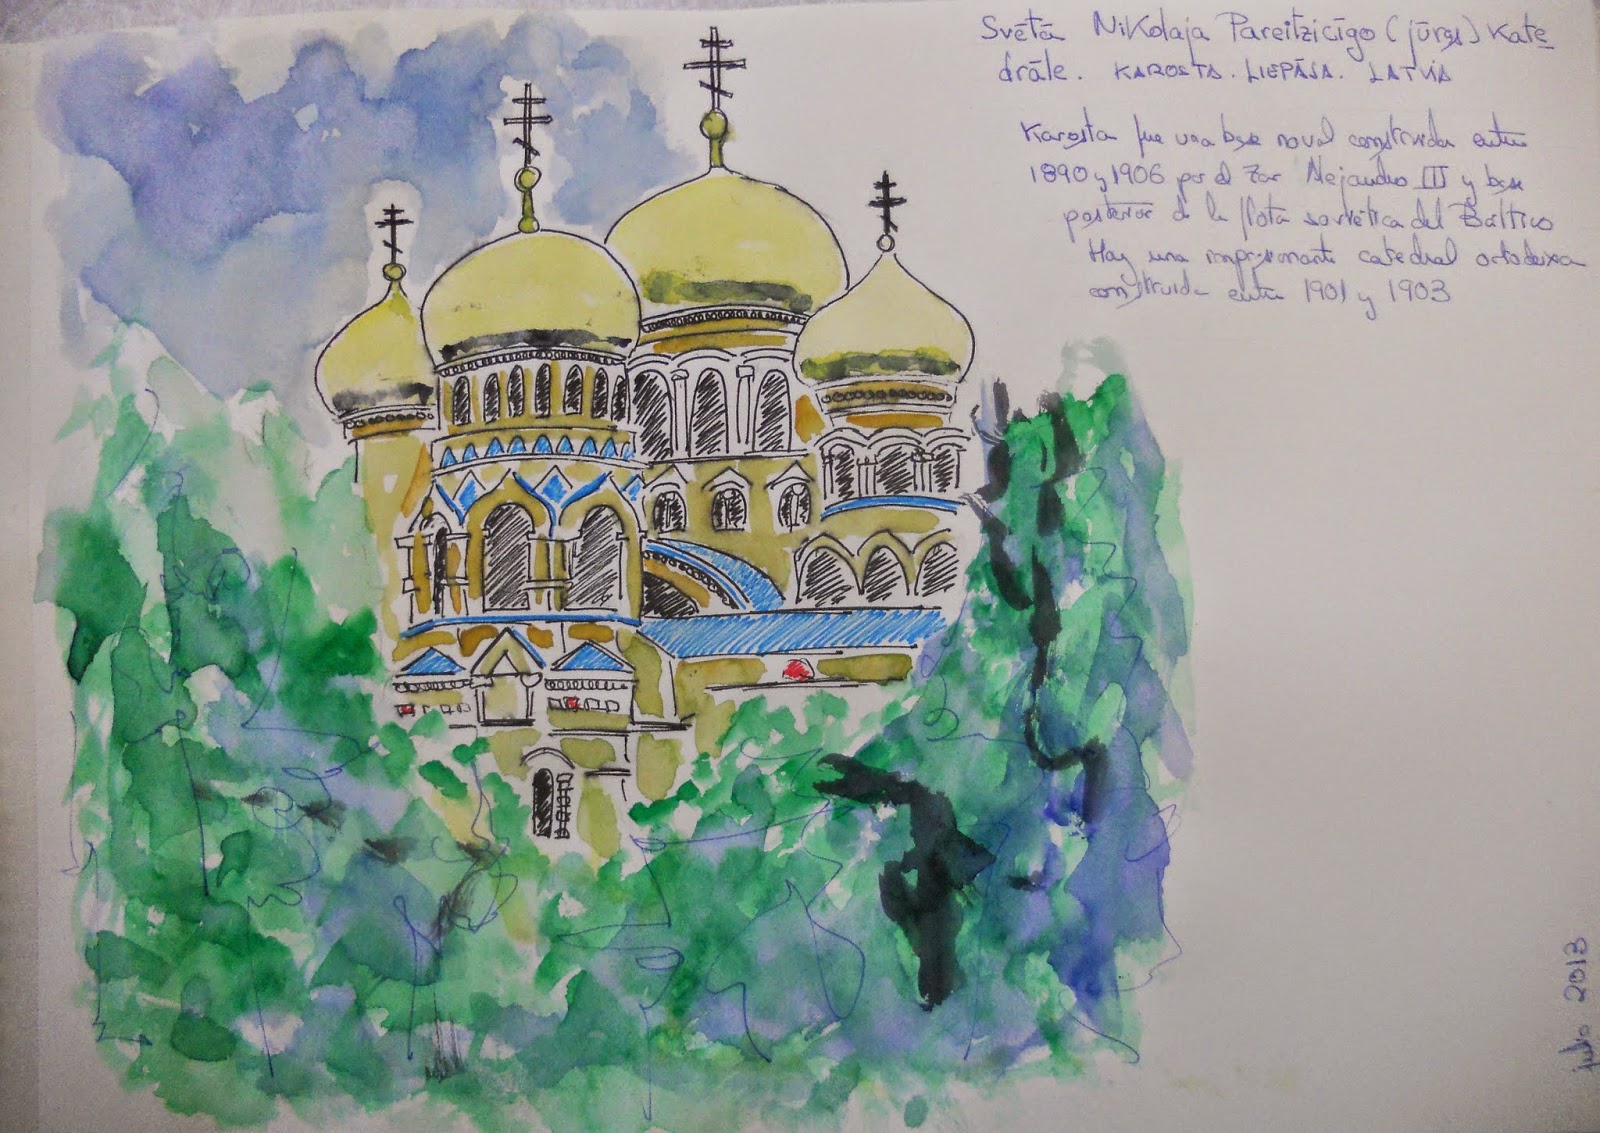 Svētā Nikolaja Pareitzicīgo (jūras) Kate
drāle. KAROSTA. LIEPĀJA. LATVIA
Karosta fue una base naval construida entre
1890 y 1906 por el Zar Alejandro III y base
posterior de la flota soviética del Báltico
Hay una impresionante catedral ortodoxa
construida entre 1901 y 1903
julio 2013